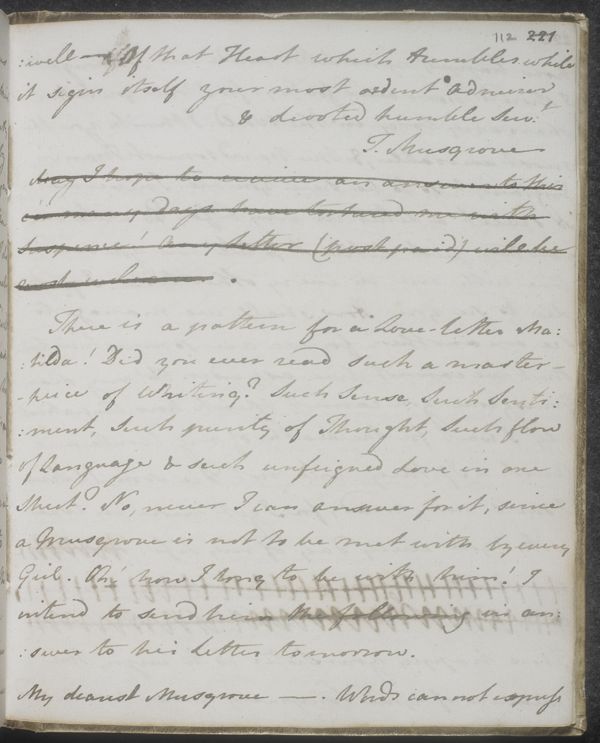 112 221
:well — Of that Heart which trembles while
it signs itself your most ardent Admirer
& devoted humble Servt.
T. Musgrove —
May I hope to receive an answer to this
in many Days have tortured me with
Suspence! any letter (post paid) will be
most welcome.
There is a pattern for a Love-letter Ma:
:tilda! Did you ever read such a master-
-piece of Writing? Such Sense, Such Senti:
:ment, Such purity of Thought, Such flow
of Language & such unfeigned Love in one
Sheet? No, never I can answer for it, since
a Musgrove is not to be met with by every
Girl. Oh! how I long to be with him! I
intend to send him the following in an:
:swer to his Letter tomorrow.
My dearest Musgrove — . Words cannot express